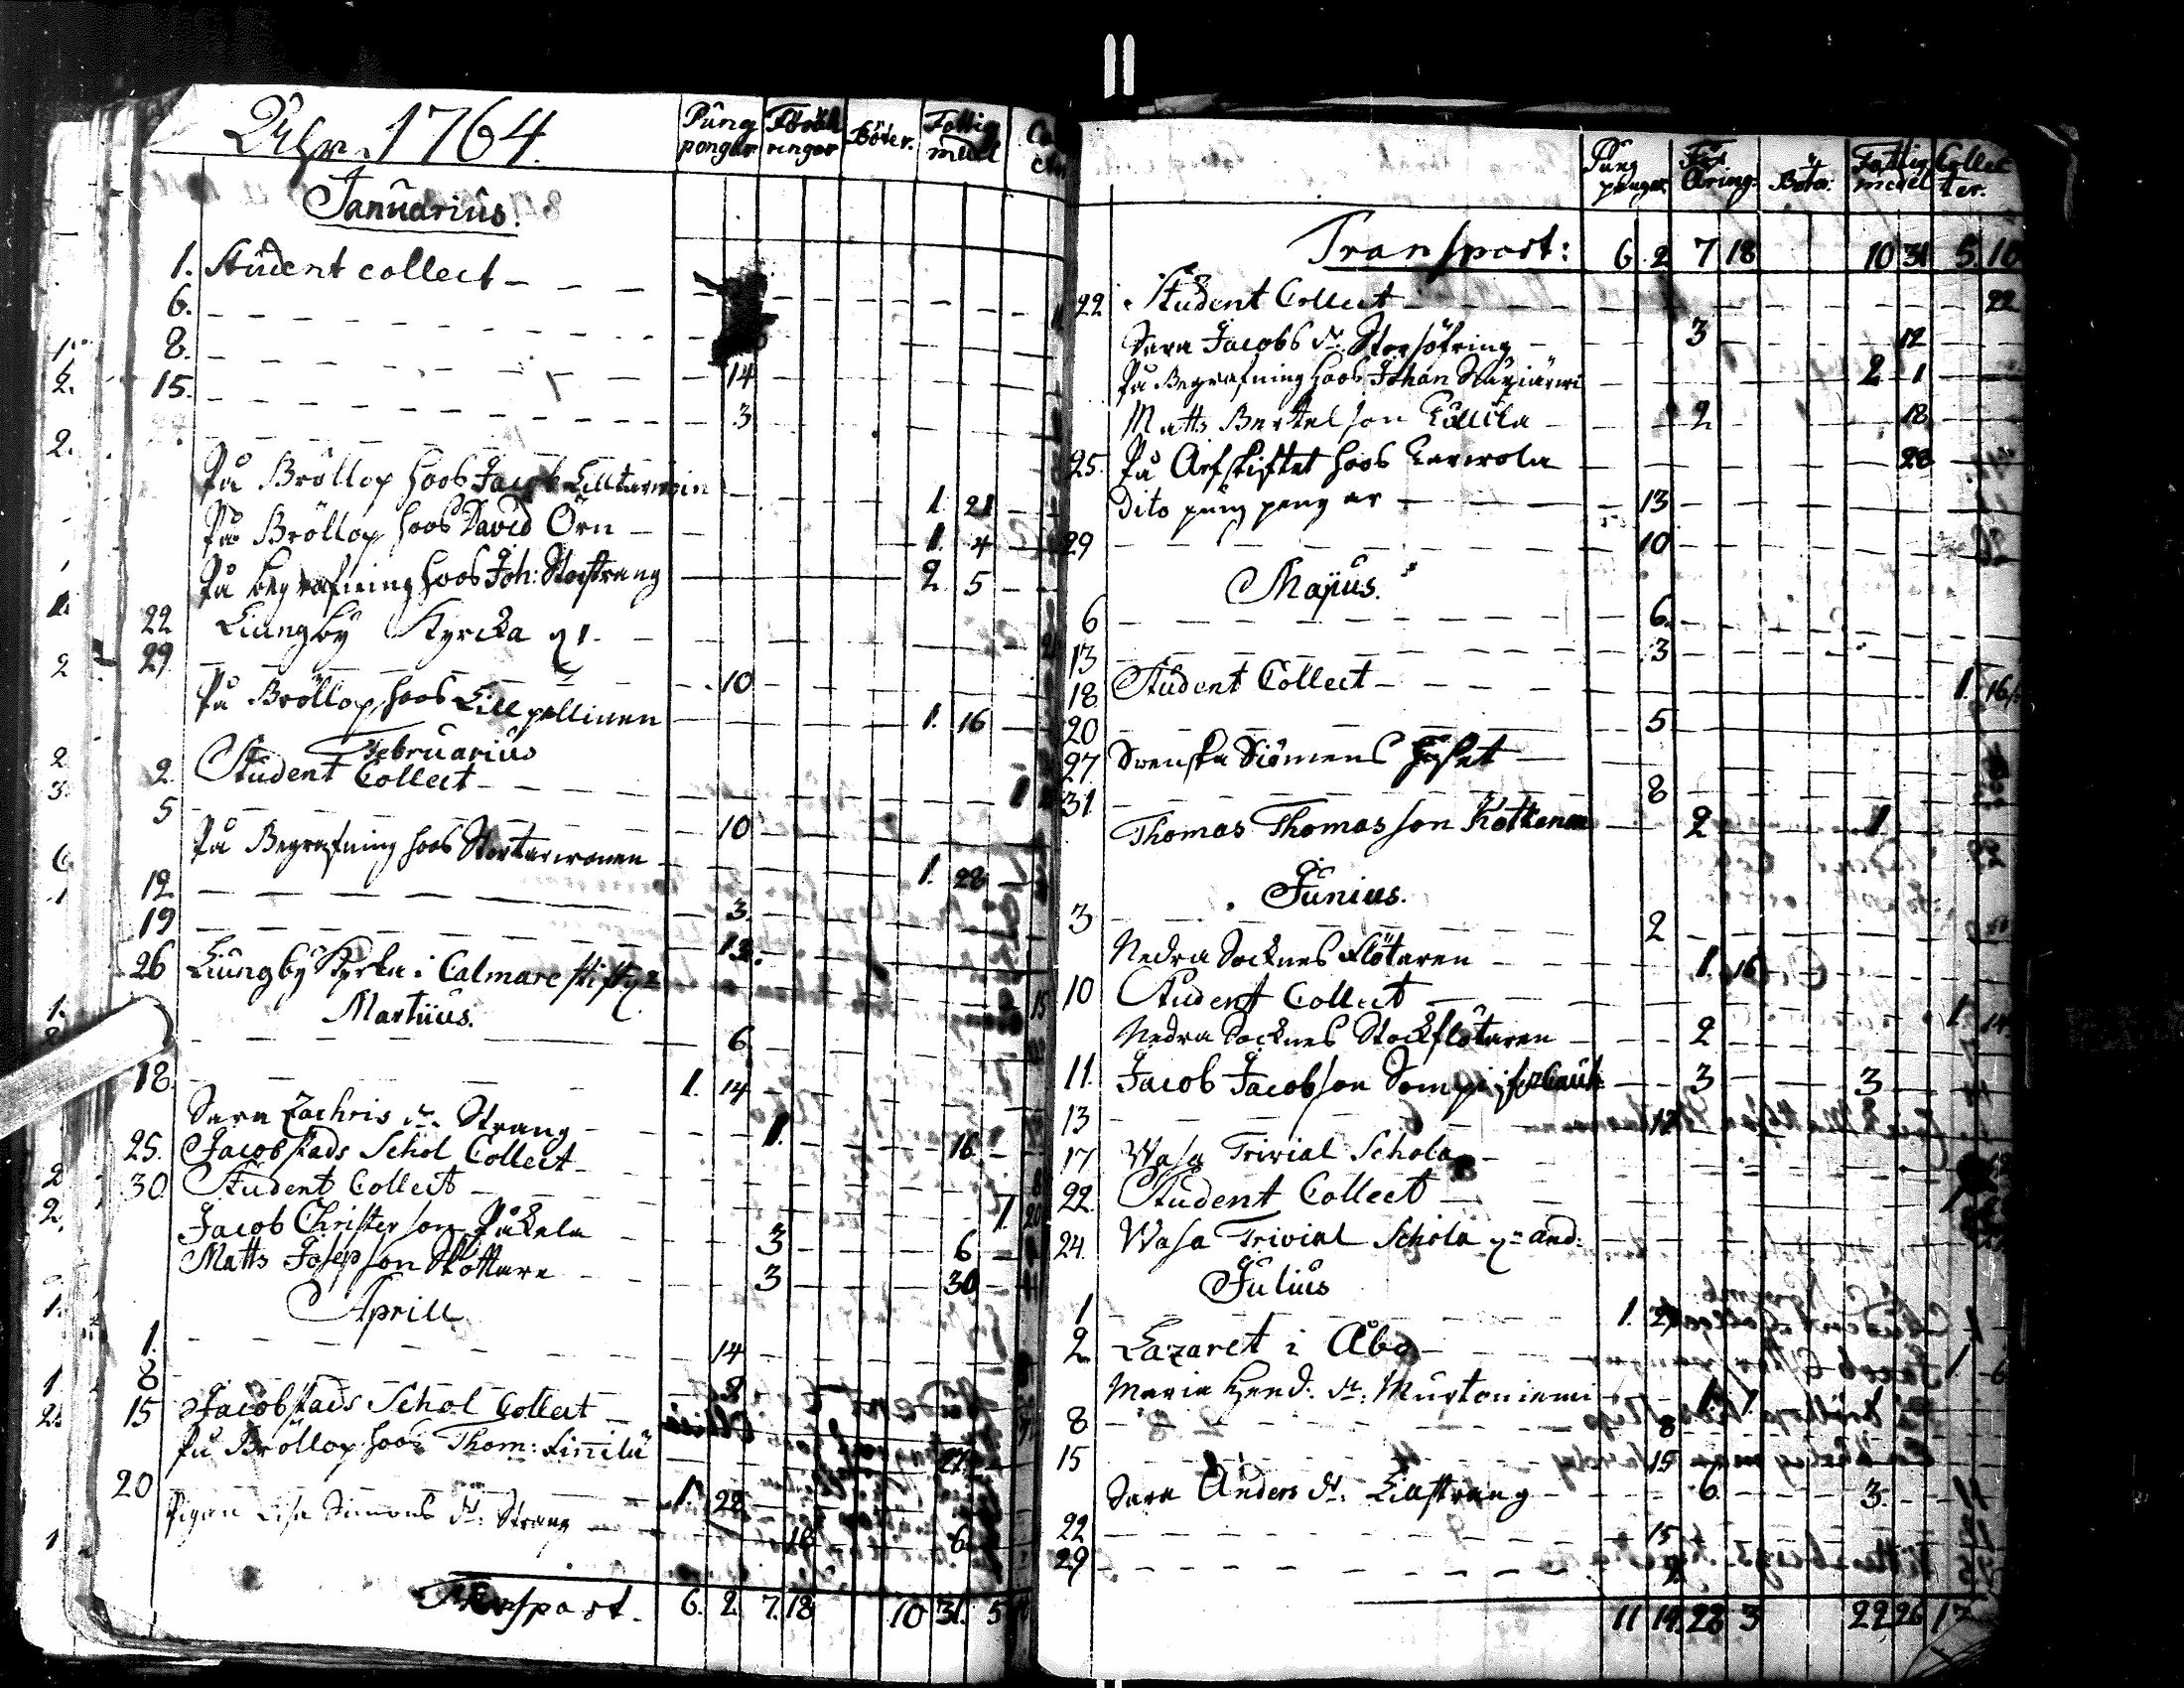 Åhr 1764.
Pung pengar Föräh ringar Böter. Fattig medel
Januarius.
1. Student collect
6.
8. 14
15. 3
På Bröllop hoos Jacob Lilltarwoin 1. 21
På Bröllop hoos David Örn 1. 4
På begrafning hoos Joh: Storstrang 2. 5
22 Liungby Kyrcka
29. 10
På Bröllop hoos Lill pellinen 1. 16
Februarius
2. Student Collect 1
5 10
På Begrafning hoos Stortarwonen 1. 28
12. 3
19 13.
26 Liungby Kyrka i Calmare stift 15
Martius.
6
18. 1. 14
Sara Zachris dr. Strang 1. 16
25. Jacobstads Schol Collect
30 Student Collect 1. 20
Jacob Christerson Påkela 3 6
Matts Josepson Skottare 3 30
Aprill
1. 14
8 8
15 Jacobstads Schol Collect
På Bröllop hoos Thom: Linnilä 27
20 1. 22
Pigan Lisa Simons dr: Strang 18 6
Transport. 6. 2. 7. 18 10 31. 5
Pung pengar För Äring. Böter. Fattig medel Collec ter.
Transport: 6 2 7 18 10 31 5. 10
22 Student Collect 22
Sara Jacobs dr. Storsöfring 3 12
På Begrafning hoos Johan 2 1
Matts Bertelson 2 18
25. På Arfskiftet hoos Karwola 28
Dito pung pengar 13
29 10
Majus.
6 6.
13 3
18 Student Collect 1. 16
20 5
27 Swenska Siömens Huset
31 8
Thomas Thomasson Kottenen 2 1
Junius.
3 2
Nedra Socknes Flötaren 1. 16
10 Student Collect 1. 14
Nedra Socknes Stockflötaren 2
11. Jacob Jacobson Sompi 3 3
13 12
17 Wasa Trivial Schola
22. Student Collect
24. Wasa Trivial Schola and:
Julius
1 1.
2. Lazaret i Åbo
Maria Hend: dr: Murtoniemi 1
8 8
15 15
Sara Anders dr. Lillstrang 6 3
22 15
29 9
11 14. 28 3 22 26 17